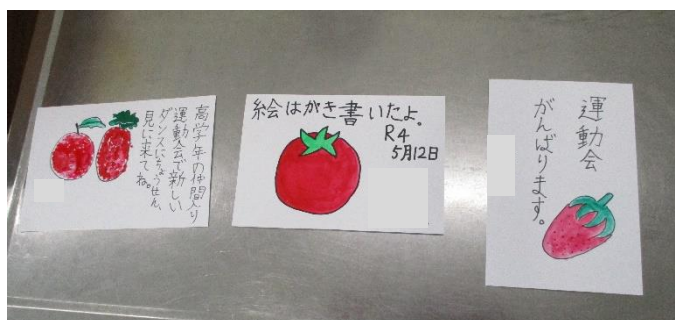 高学年の仲間入り
運動会で新しい
ダンスにちょうせん、
見に来てね。
絵はがき書いたよ。
R4
5月12日
運動会
がんばります。